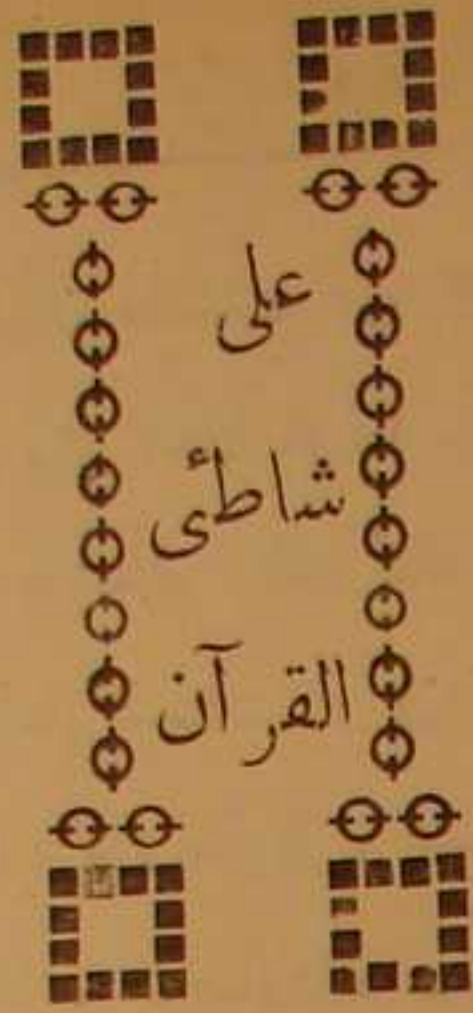 على
شاطئ
القرآن